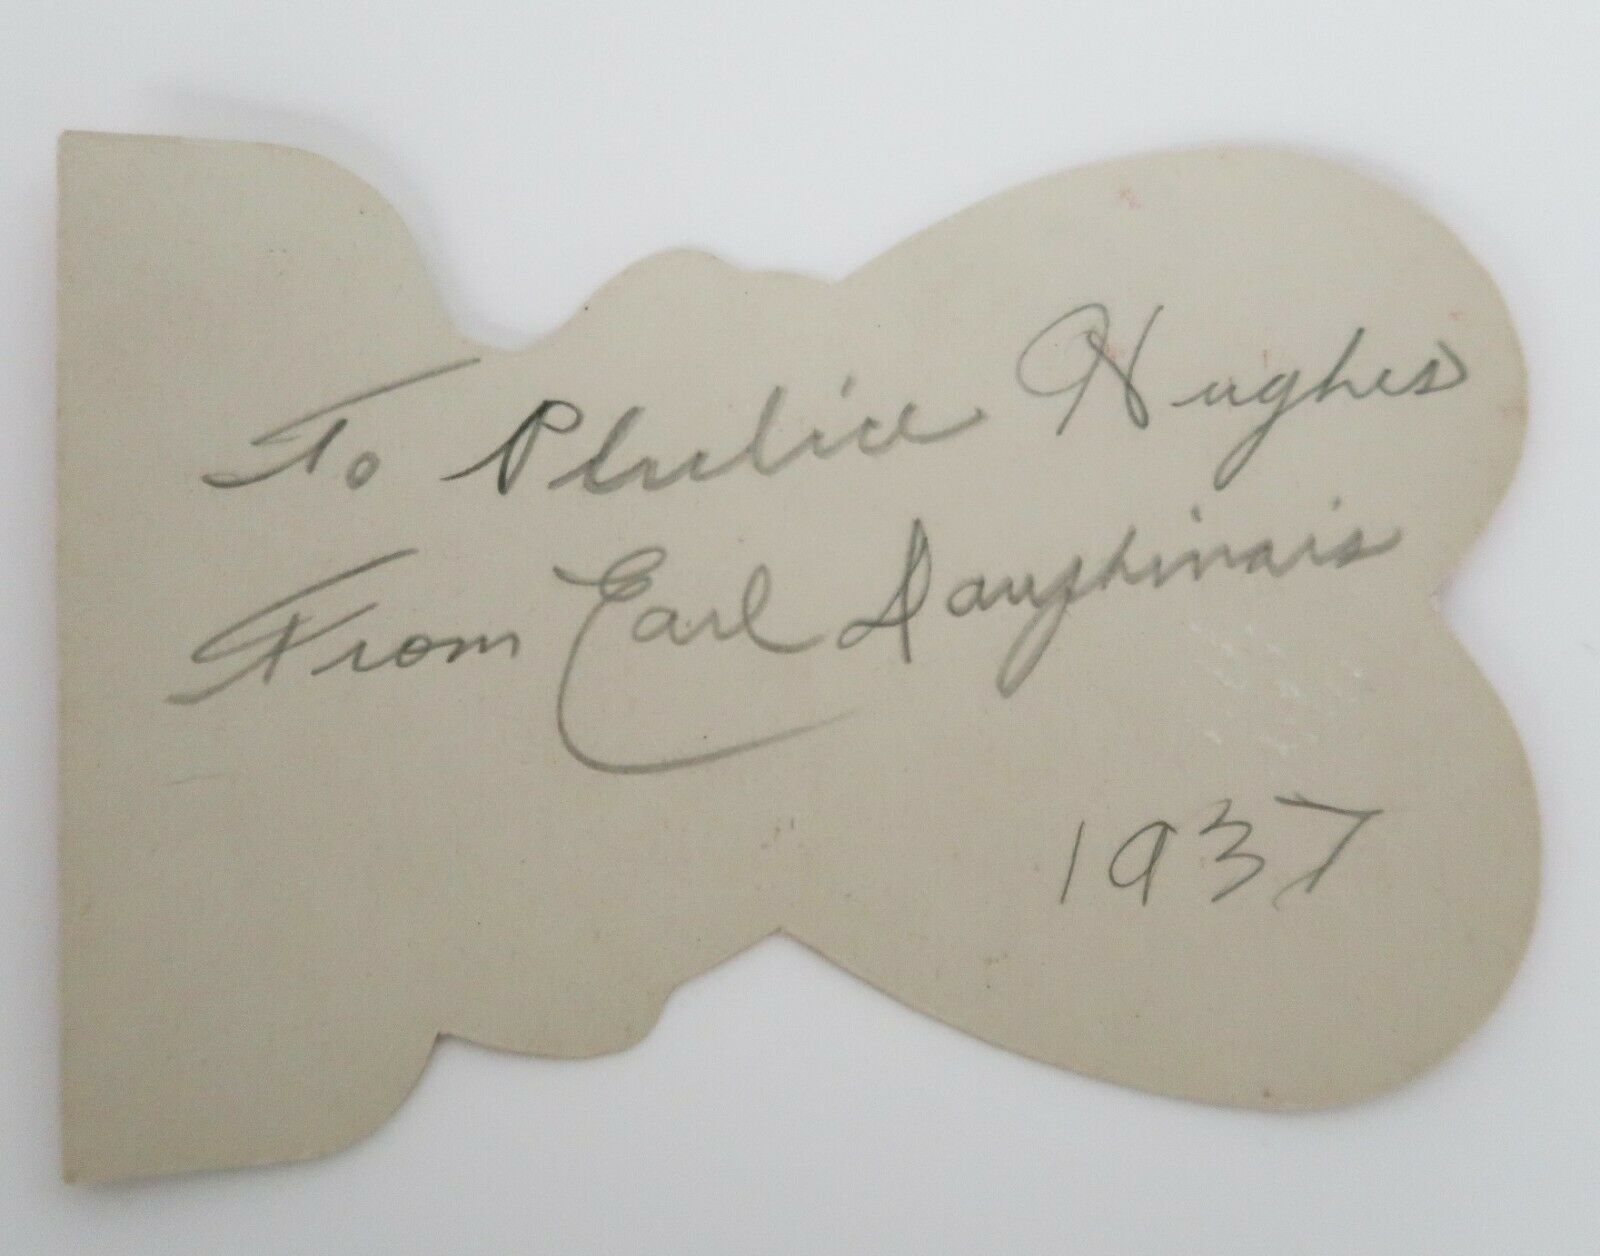 To Phelice Hughes
From Earl Dauphinais
1937